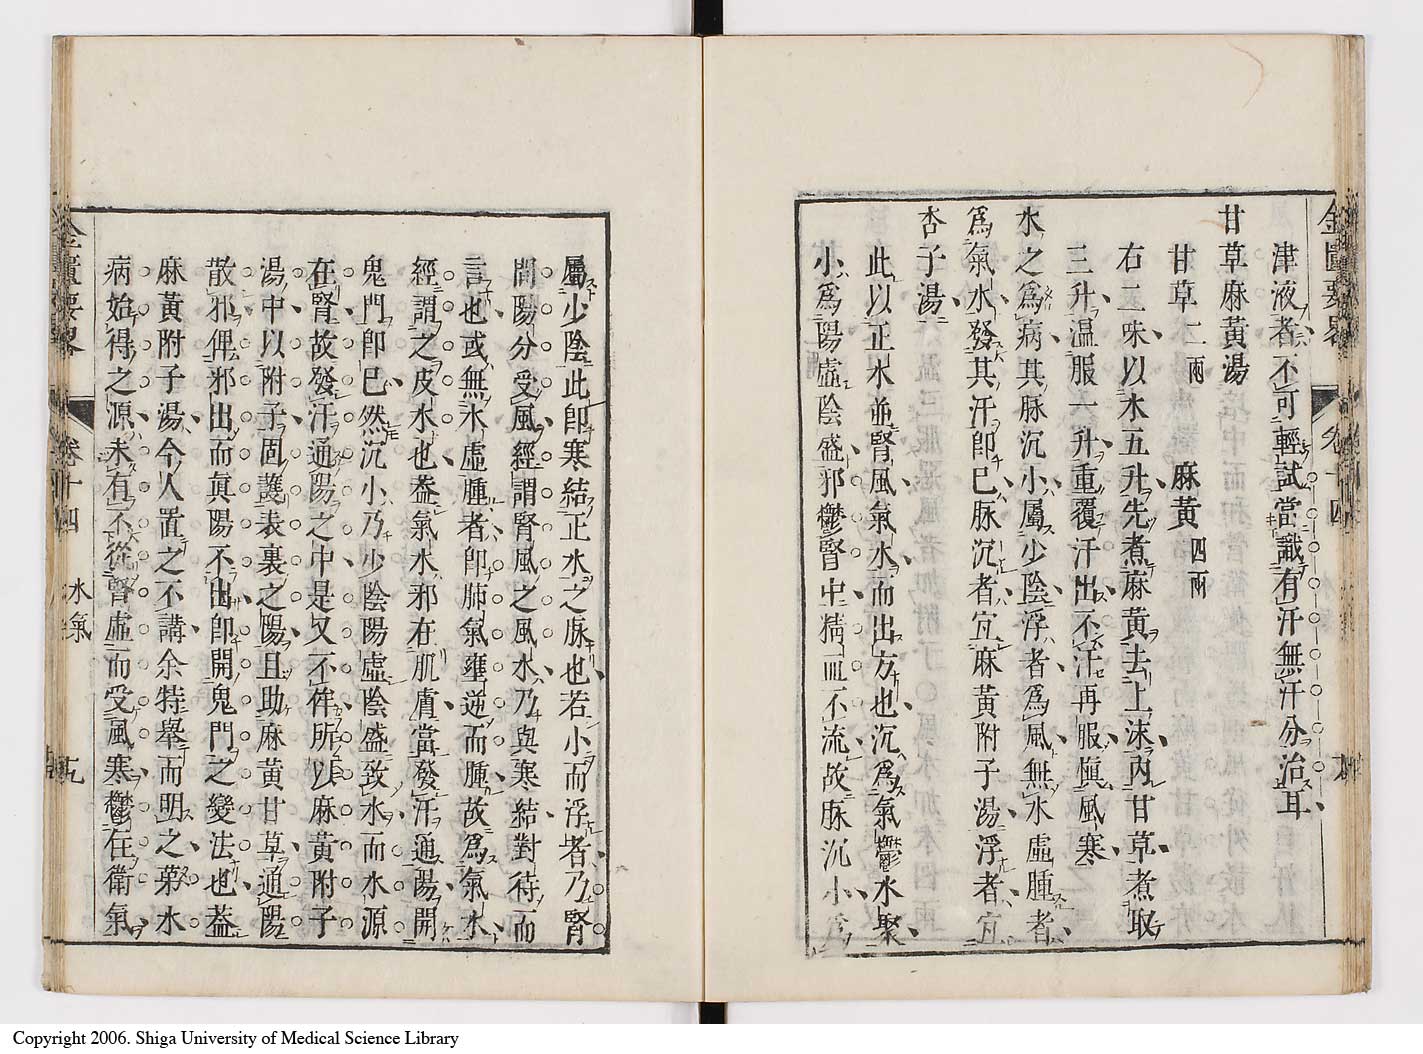 津液者不可輕試當識有汗無汗分治耳
甘草麻黃湯
甘草二兩 麻黃四兩
右二味以水五升先煮麻黃去上沫內甘草煮取
三升温服一升重覆汗出不汗再服愼風寒
水之爲病其脉沉小屬少陰浮者爲風無水虛腫者
爲氣水發其汗卽已脉沉者宜麻黃附子湯浮者宜
杏子湯
此以正水並腎風氣水而出方也沉爲氣鬱水聚
小爲陽虛陰盛邪鬱腎中精血不流故脉沉小爲
屬少陰此卽寒結正水之脉也若小而浮者乃腎
間陽分受風經謂腎風之風水乃與寒結對待而
言也或無水虛腫者卽肺氣壅逆而腫故爲氣水
經謂之皮水也葢氣水邪在肌膚當發汗通陽開
鬼門卽已然沉小乃少陰陽虛陰盛致水而水源
在腎故發汗通陽之中是又不侔所以麻黃附子
湯中以附子固護表裏之陽且助麻黃甘草通陽
散邪俾邪出而眞陽不出卽開鬼門之變法也葢
麻黃附子湯今人置之不講余特舉而明之第水
病始得之源未有不從腎虛而受風寒鬱在衛氣
金匱要畧 卷十四 水氣 十九